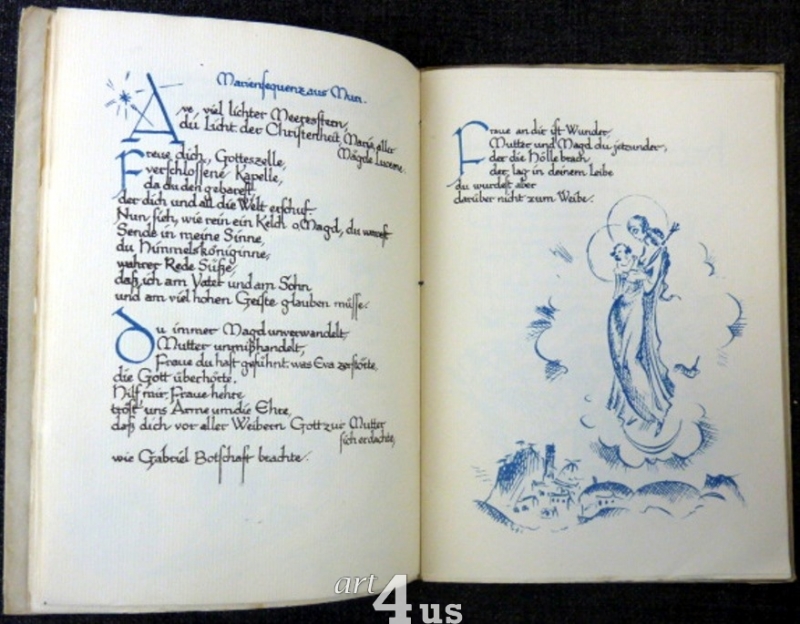 Mariensequenz aus Muri.
Ave, viel lichter Meeresstern,
du Licht der Christenheit, Maria, aller
Mägde Lucerne.
Freue dich, Gotteszelle,
verschlossene Kapelle,
da du den gebarest!
der dich und all die Welt erschuf.
Nun sieh, wie rein ein Kelch o Magd, du warest
Sende in meine Sinne,
du Himmelsköniginne,
wahrer Rede Süße,
daß ich am Vater und am Sohn
und am viel hohen Geiste glauben müsse.
Du immer Magd unverwandelt,
Mutter unmißhandelt,
Fraue du hast gesühnt was Eva zerstörte,
die Gott überhörte.
Hilf mir, Fraue hehre
tröst' uns Arme um die Ehre,
daß dich vor aller Weibern Gott zur Mutter
sich erdachte,
wie Gabriel Botschaft brachte.
Fraue an dir ist Wunder,
Mutter und Magd du jetzunder,
der die Hölle brach,
der lag in deinem Leibe
du wurdest aber
darüber nicht zum Weibe.
art 4 us